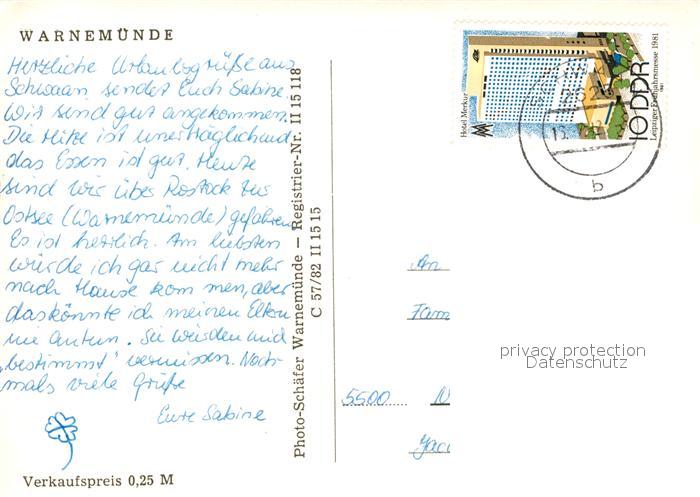 WARNEMÜNDE
Herzliche Urlaubsgrüße aus
Schwaan sendet Euch Sabine.
Wir sind gut angekommen.
Die Hitze ist unerträglich und
das Essen ist gut. Heute
sind wir über Rostock zur
Ostsee (Warnemünde) gefahren
Es ist herrlich. Am liebsten
würde ich gar nicht mehr
nach Hause kommen, aber
das könnte ich meinen Eltern
nie antun. Sie würden mich
"bestimmt" vermissen. Noch-
mals viele Grüße
Eure Sabine
Verkaufspreis 0,25 M
Photo-Schäfer Warnemünde — Registrier-Nr. II 15 118
C 57/82 II 15 15
Hotel Merkur
10 DDR
Leipziger Frühjahrsmesse 1981
b
An
Fam
5500 N
Jac
privacy protection
Datenschutz